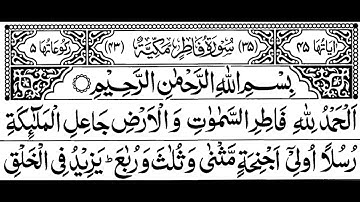 اٰیَاتُهَا ۴۵ (۳۵) سُوْرَةُ فَاطِرٍ مَكِّيَّةٌ (۴۳) رُكُوْعَاتُهَا ۵
بِسْمِ اللّٰهِ الرَّحْمٰنِ الرَّحِيْمِ ۝
اَلْحَمْدُ لِلّٰهِ فَاطِرِ السَّمٰوٰتِ وَالْاَرْضِ جَاعِلِ الْمَلٰٓئِكَةِ
رُسُلًا اُولِیْٓ اَجْنِحَةٍ مَّثْنٰی وَثُلٰثَ وَرُبٰعَ ؕ یَزِیْدُ فِی الْخَلْقِ